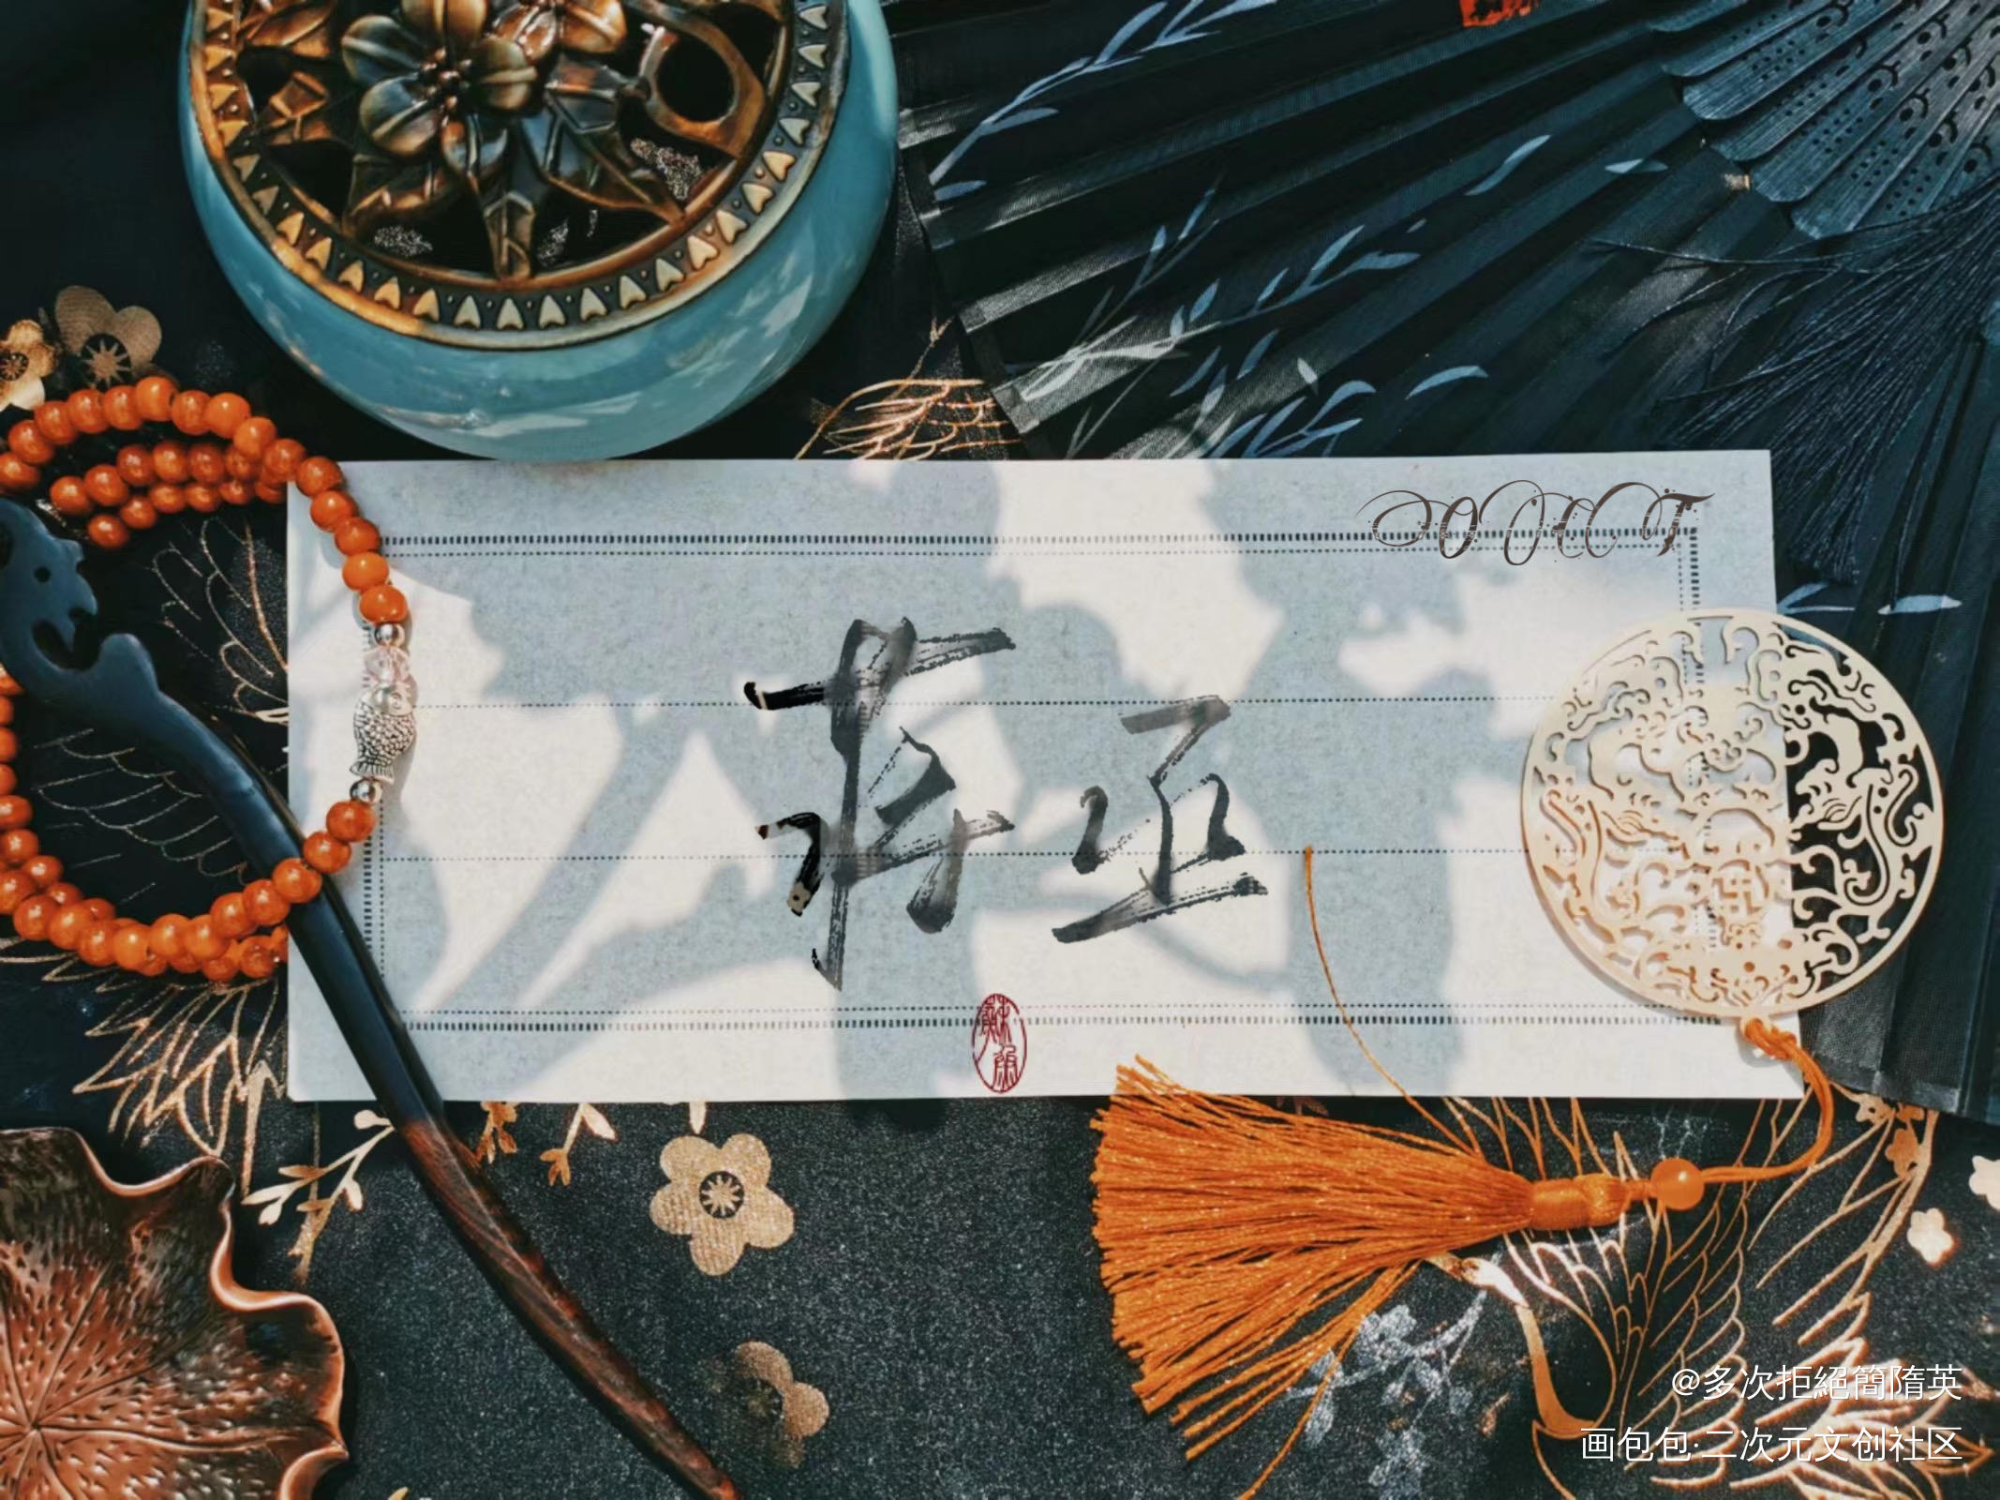 蒋丞
@多次拒絕簡隋英
画包包·二次元文创社区